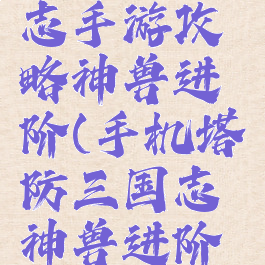 志手游攻
略神兽进
阶(手机塔
防三国志
神兽进阶